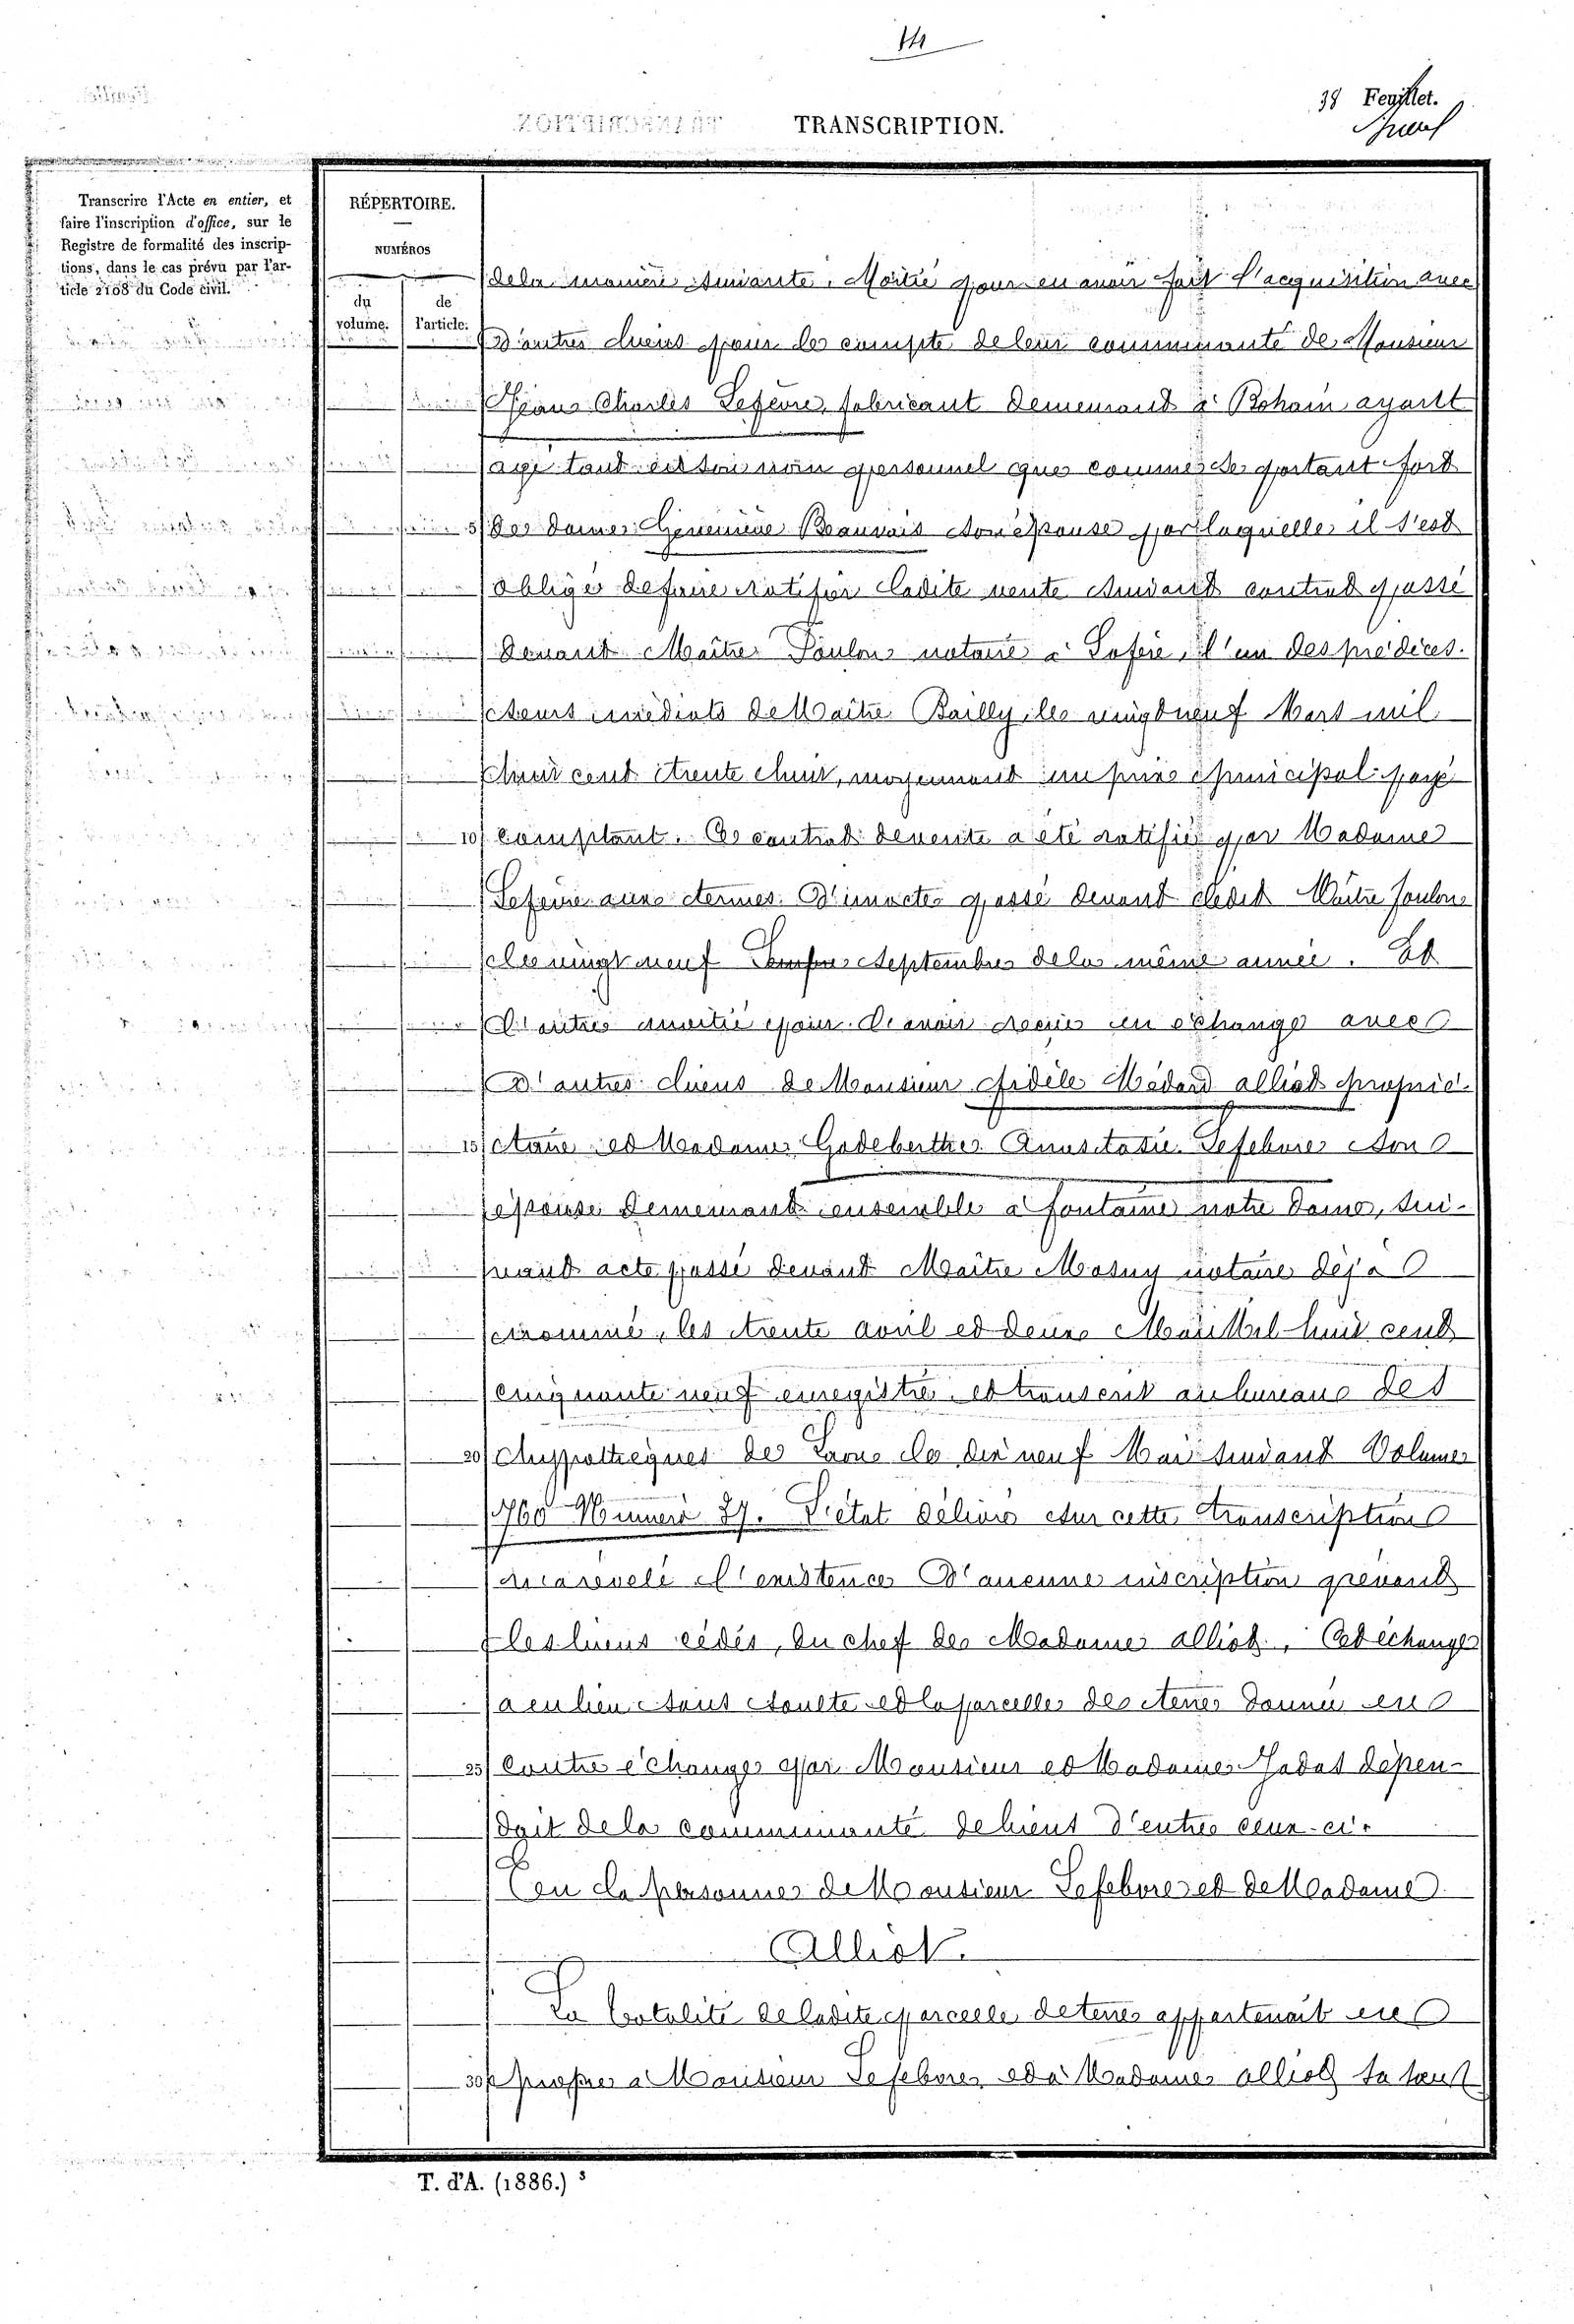 14
38 Feuillet.
TRANSCRIPTION.
Transcrire l'Acte en entier, et
faire l'inscription d'office, sur le
Registre de formalité des inscrip-
tions, dans le cas prévu par l'ar-
ticle 2108 du Code civil.
RÉPERTOIRE.
NUMÉROS
du volume.
de l'article.
de la manière suivante. Moitié pour en avoir fait l'acquisition avec
d'autres biens pour le compte de leur communauté de Monsieur
Jean Charles Lefèvre, fabricant demeurant à Bohain ayant
agi tant en son nom personnel que comme se portant fort
5 de dame Geneviève Beauvais son épouse par laquelle il s'est
obligé de faire ratifier ladite vente suivant contrat passé
devant Maître Foulon notaire à Lafère, l'un des prédéces-
seurs médiats de Maître Bailly, le vingt neuf Mars mil
huit cent trente huit, moyennant un prix principal payé
10 comptant. Ce contrat de vente a été ratifié par Madame
Lefèvre aux termes d'un acte passé devant ledit Maître Foulon
le vingt neuf septembre de la même année. Et
l'autre moitié pour l'avoir reçue en échange avec
d'autres biens de Monsieur Fidèle Médard Alliot proprié-
15 taire et Madame Godeberthe Anastasie Lefebvre son
épouse demeurant ensemble à Fontaine notre Dame, sui-
vant acte passé devant Maître Mosny notaire déjà
nommé, les trente avril et deux Mai Mil huit cent
cinquante neuf enregistré et transcrit au bureau des
20 hypothèques de Laon le dix neuf Mai suivant Volume
760 Numéro 37. L'état délivré sur cette transcription
n'a révélé l'existence d'aucune inscription grévant
les biens cédés, du chef de Madame Alliot. Cet échange
a eu lieu sans soulte et la parcelle de terre donnée en
25 contre échange par Monsieur et Madame Jadas dépen-
dait de la communauté de biens d'entre eux-ci.
En la personne de Monsieur Lefebvre et de Madame
Alliot.
La totalité de ladite parcelle de terre appartenait en
30 propre à Monsieur Lefebvre et à Madame Alliot sa sœur
T. d'A. (1886.) 3